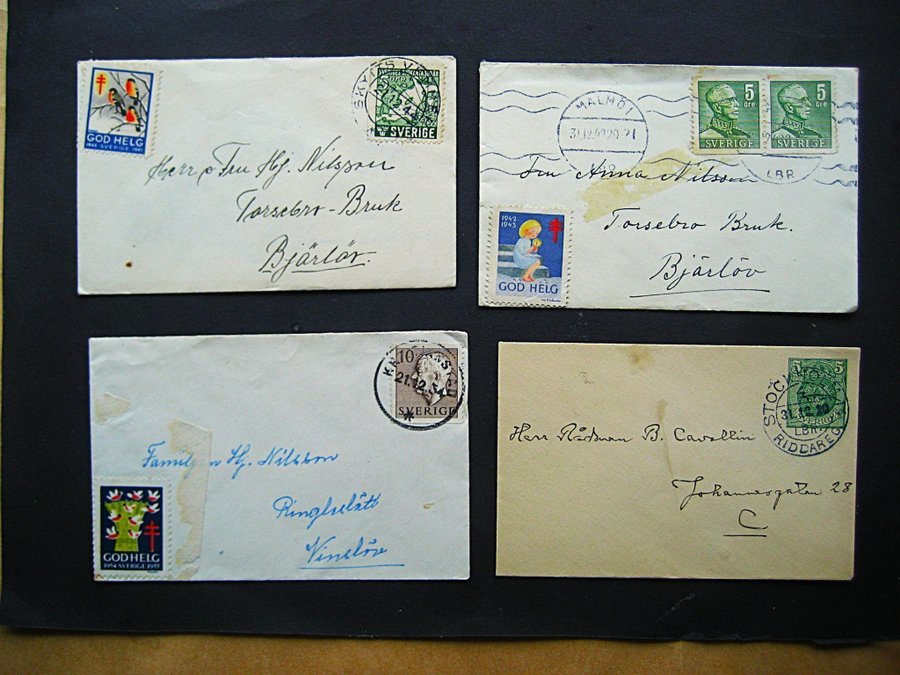 GOD HELG
1944 SVERIGE 1945
SVERIGE
Herr o Fru Hj. Nilsson
Torsebro-Bruk
Bjärlöv.
MALMÖ 1
31.12.42 20-21
5 öre
5 öre
SVERIGE
SVERIGE
LBR
Fru Anna Nilsson
Torsebro Bruk.
Bjärlöv
1942
1943
GOD HELG
10
SVERIGE
21.12.54
Familjen Hj. Nilsson
Vinslöv
GOD HELG
1954 SVERIGE 1955
5 5
STOCKHOLM
31.12
LBR
RIDDAREG
Herr Rådman B. Cavallin
Johannesgatan 28
C